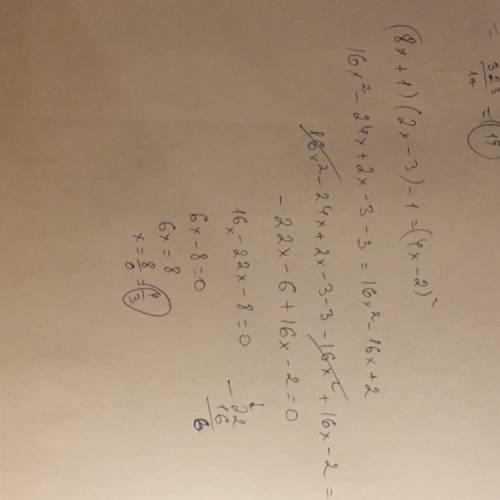 = 323/17 = 19
(8x+1)(2x-3)-1=(4x-2)²
16x²-24x+2x-3-3=16x²-16x+2
16x²-24x+2x-3-3-16x²+16x-2=
-22x-6+16x-2=0
16x-22x-8=0
6x-8=0
6x=8
x=8/6=4/3
-22
16
6